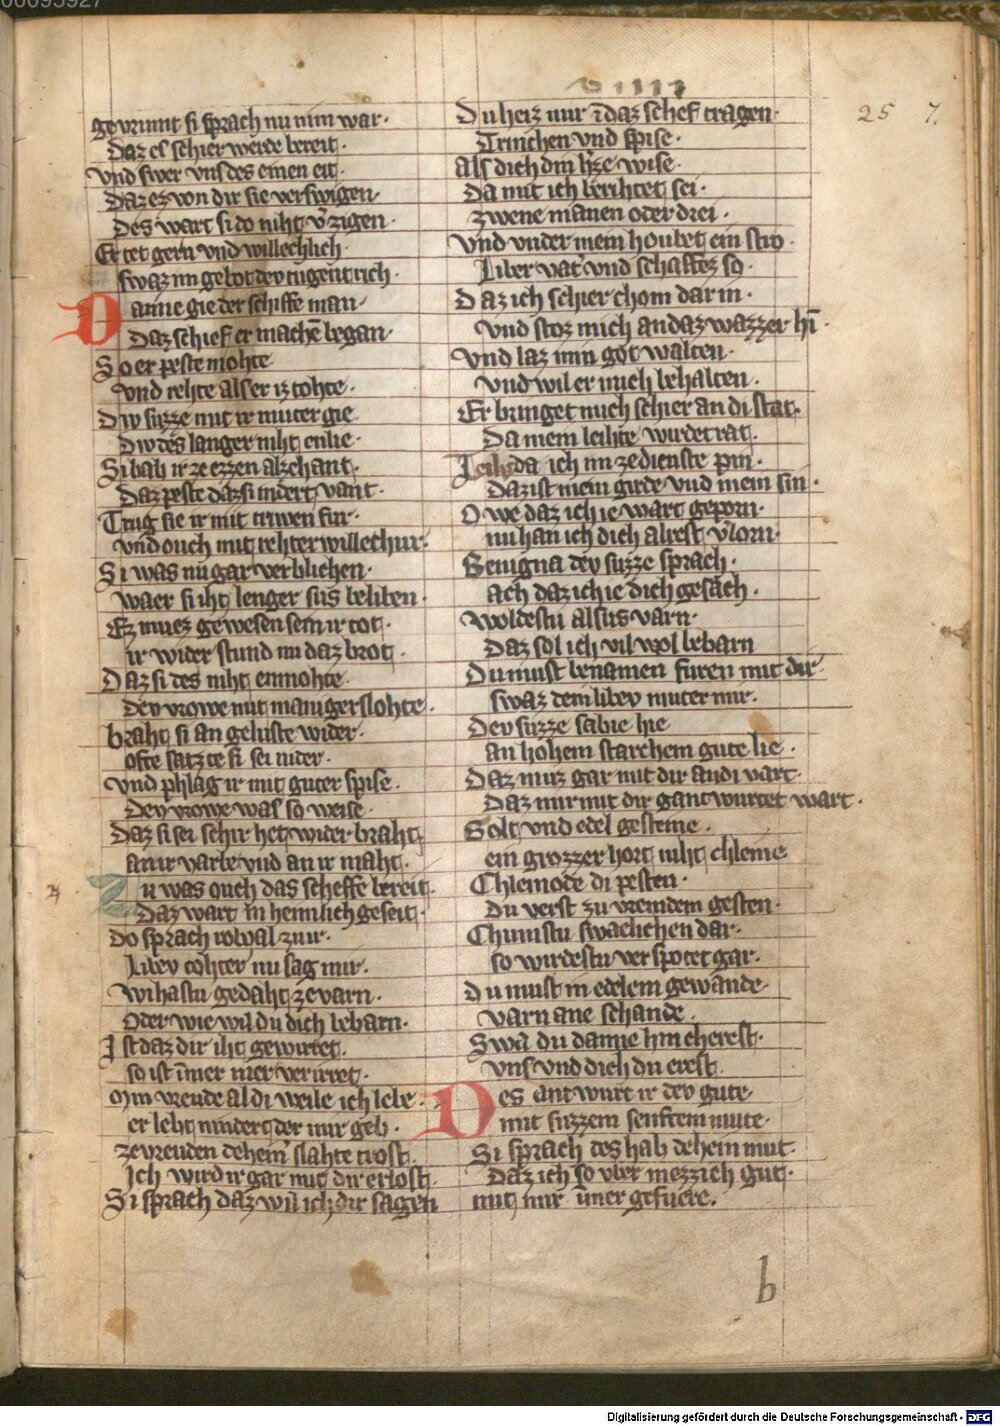 00095927
v iiii
25 7.
gevriunt si sprach nu nim war·
Daz es schier werde bereit·
vnd swer vns des einen eit·
Daz ez von dir sie verswigen·
Des wart si do niht v̾zigen·
Er tet gern vnd willechlich·
swaz im gebot dev tugentrich·
Danne gie der schiffe man·
Daz schief er machē began·
So er peste mohte
vnd rehte als er iz tohte·
Div suzze mit ir muter gie
Div des langer niht enlie·
Si bat ir ze ezzen alzehant·
Daz peste daz si indert vant·
Trug sie ir mit triwen fur·
vnd ouch mit rehter willechur·
Si was nu gar verblichen·
waer si iht lenger sus beliben·
Ez muez gewesen sein ir tot·
ir wider stund nu daz brot·
Daz si des niht enmohte·
Dev vrowe mit maniger slohte·
braht si an geluste wider·
ofte satzte si sei nider·
vnd phlag ir mit guter spise·
Dev vrowe was so weise·
Daz si sei schir het wider braht·
an ir varbe vnd an ir maht·
Nu was ouch das scheffe bereit·
Daz wart in heimlich geseit·
do sprach zu ir·
Libev tohter nu sag mir·
wi hastu gedaht ze varn·
Oder wie wil du dich bebarn·
Ist daz dir iht gewirret·
so ist īmer mer verirret·
Min vreude al di weile ich lebe·
er lebt nindert der mir geb·
ze vreuden deheiń slahte trost·
Ich wird ir gar mit dir erlost·
Si sprach daz wil ich dir sagen
Du heiz mir ī daz schef tragen·
Trinchen vnd spise·
Als dich din h̾ze wise·
Da mit ich berihtet sei·
zwene manen oder drei·
vnd vnder mein houbet ein stro·
Liber vat̾ vnd schaffez so·
Daz ich schier chom dar in·
vnd stoz mich an daz wazzer hī·
vnd laz min got walten·
vnd wil er mich behalten·
Er bringet mich schier an di stat·
Da mein leihte wirdet rat·
da ich im ze dienste pin·
Daz ist mein girde vnd mein sin·
Owe daz ich ie wart geporn·
nu han ich dich alrest v̾lorn·
Benigna dev suzze sprach·
ach daz ich ie dich gesach·
woldestu alsus varn·
Daz sol ich vil wol bebarn
Du must benamen furen mit dir
swaz dein libev muter mir·
Dev suzze sabie hie
an hohem starchem gute lie·
Daz muz gar mit dir an di vart·
Daz mir mit dir gantwurtet wart·
Golt vnd edel gesteine·
ein grozzer hort niht chleine
Chleinode di pesten·
Du verst zu vremdem gesten·
Chumstu swaelichen dar·
so wirdestu verspotet gar·
Du must in edelem gewande·
varn ane schande·
Swa du danne hin cherest·
vns vnd dich du erest·
Des antwurt ir dev gute·
mit suzzem senftem mute·
Si sprach des hab dehein mut·
Daz ich so vber mezzich gut·
mit mir īmer gefuere·
b
Digitalisierung gefördert durch die Deutsche Forschungsgemeinschaft - DFG